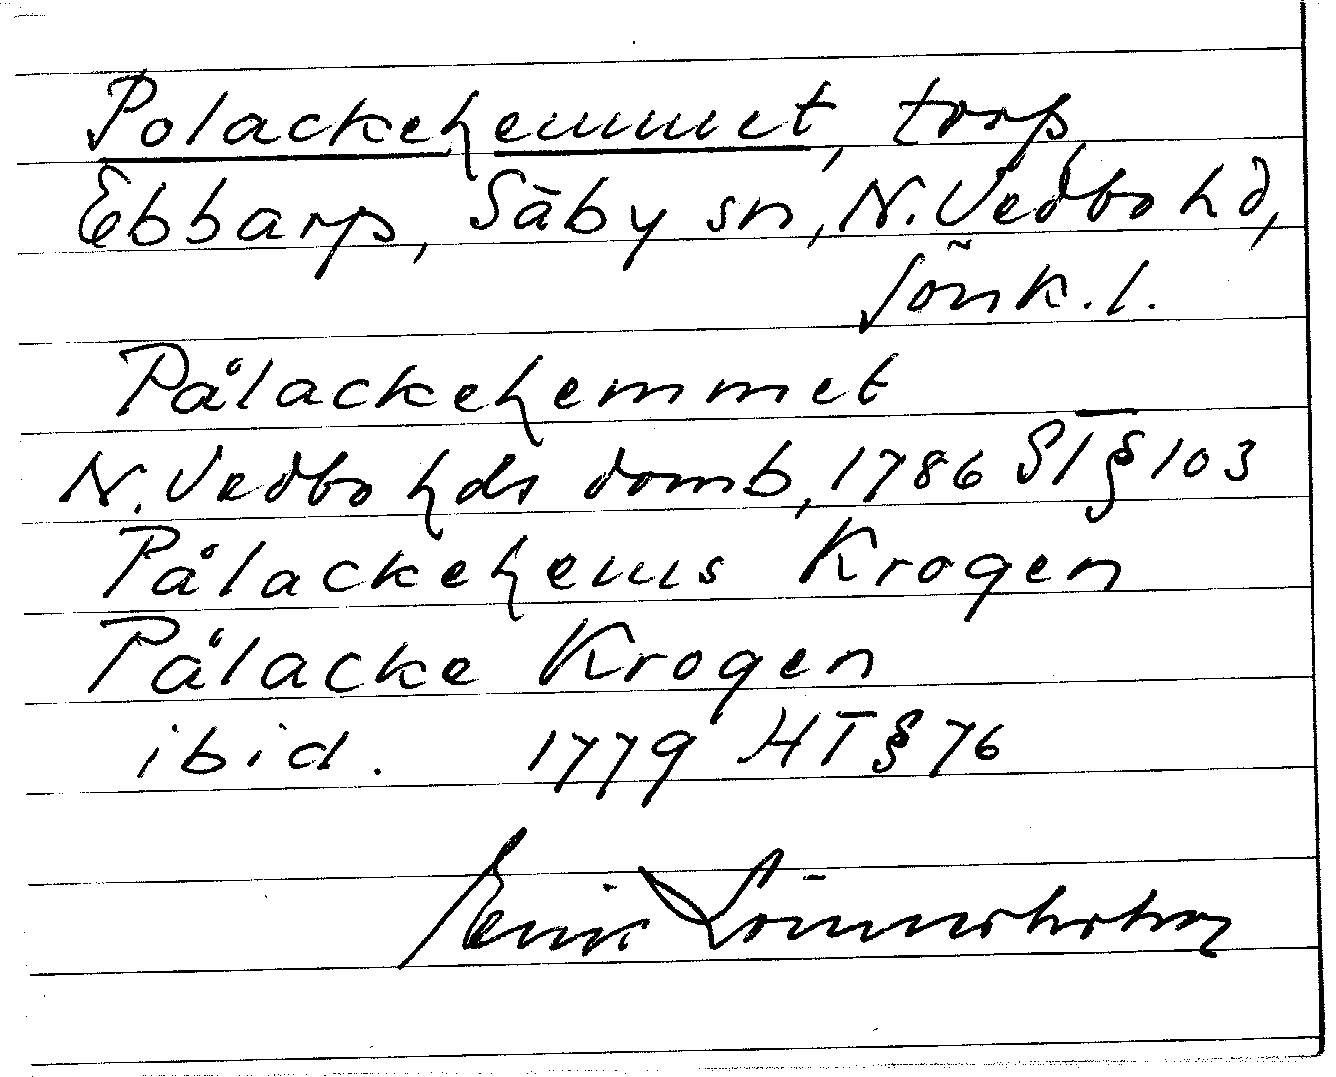 Polackehemmet, torp
Ebbarp, Säby sn, N. Vedbo hd,
Jönk. l.
Pålackehemmet
N. Vedbo hds domb, 1786 ST § 103
Pålackehems Krogen
Pålacke Krogen
ibid. 1779 HT § 76